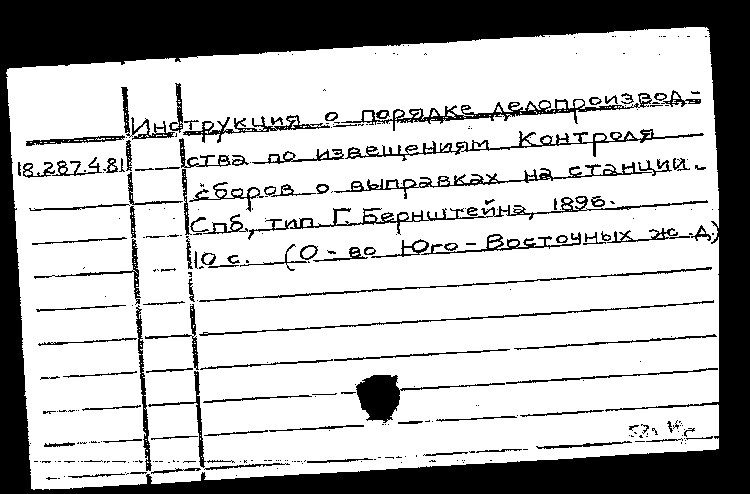 Инструкция о порядке делопроизвод-
18.287.4.81 ства по извещениям Контроля
сборов о выправках на станции.
Спб., тип. Г. Бернштейна, 1896.
10 с. (О-во Юго-Восточных ж.д.)